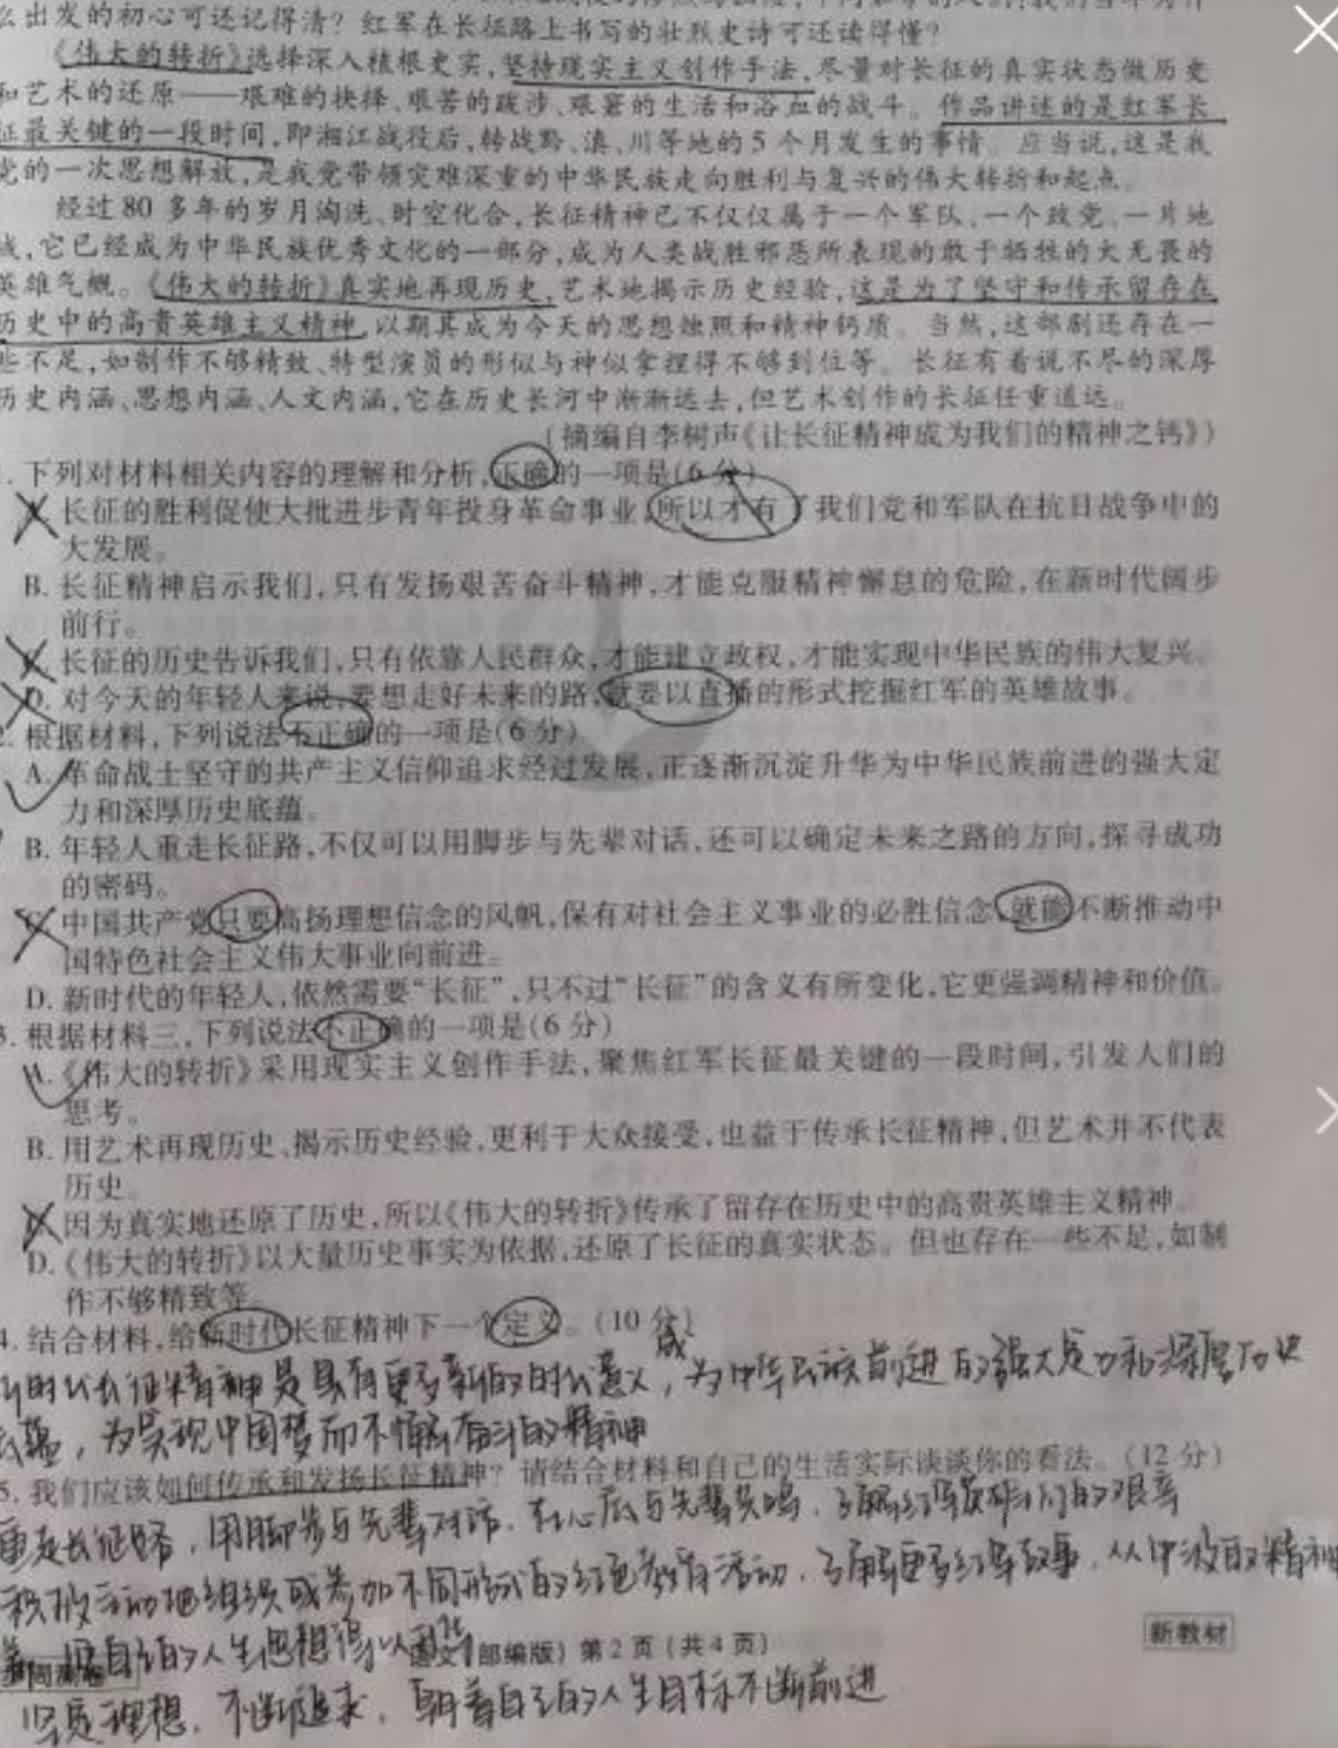 么出发的初心可还记得清？红军在长征路上书写的壮烈史诗可还读得懂？
《伟大的转折》选择深入植根史实，坚持现实主义创作手法，尽量对长征的真实状态做历史
和艺术的还原——艰难的抉择、艰苦的跋涉、艰窘的生活和浴血的战斗。作品讲述的是红军长
征最关键的一段时间，即湘江战役后，转战黔、滇、川等地的5个月发生的事情。应当说，这是我
党的一次思想解放，是我党带领灾难深重的中华民族走向胜利与复兴的伟大转折和起点。
经过80多年的岁月淘洗、时空化合，长征精神已不仅仅属于一个军队、一个政党、一片地
域，它已经成为中华民族优秀文化的一部分，成为人类战胜邪恶所表现的敢于牺牲的大无畏的
英雄气概。《伟大的转折》真实地再现历史，艺术地揭示历史经验，这是为了坚守和传承留存在
历史中的高贵英雄主义精神，以期其成为今天的思想烛照和精神钙质。当然，这部剧还存在一
些不足，如制作不够精致、特型演员的形似与神似拿捏得不够到位等。长征有着说不尽的深厚
历史内涵、思想内涵、人文内涵，它在历史长河中渐渐远去，但艺术创作的长征任重道远。
（摘编自李树声《让长征精神成为我们的精神之钙》）
1. 下列对材料相关内容的理解和分析，正确的一项是（6分）
A. 长征的胜利促使大批进步青年投身革命事业，所以才有了我们党和军队在抗日战争中的
大发展。
B. 长征精神启示我们，只有发扬艰苦奋斗精神，才能克服精神懈怠的危险，在新时代阔步
前行。
C. 长征的历史告诉我们，只有依靠人民群众，才能建立政权，才能实现中华民族的伟大复兴。
D. 对今天的年轻人来说，要想走好未来的路，就要以直播的形式挖掘红军的英雄故事。
2. 根据材料，下列说法不正确的一项是（6分）
A. 革命战士坚守的共产主义信仰追求经过发展，正逐渐沉淀升华为中华民族前进的强大定
力和深厚历史底蕴。
B. 年轻人重走长征路，不仅可以用脚步与先辈对话，还可以确定未来之路的方向，探寻成功
的密码。
C. 中国共产党只要高扬理想信念的风帆，保有对社会主义事业的必胜信念，就能不断推动中
国特色社会主义伟大事业向前进。
D. 新时代的年轻人，依然需要“长征”，只不过“长征”的含义有所变化，它更强调精神和价值。
3. 根据材料三，下列说法不正确的一项是（6分）
A.《伟大的转折》采用现实主义创作手法，聚焦红军长征最关键的一段时间，引发人们的
思考。
B. 用艺术再现历史、揭示历史经验，更利于大众接受，也益于传承长征精神，但艺术并不代表
历史。
C. 因为真实地还原了历史，所以《伟大的转折》传承了留存在历史中的高贵英雄主义精神。
D.《伟大的转折》以大量历史事实为依据，还原了长征的真实状态。但也存在一些不足，如制
作不够精致等。
4. 结合材料，给新时代长征精神下一个定义。（10分）
新时代长征精神是具有更多新的时代意义，成为中华民族前进的强大定力和深厚历史
底蕴，为实现中国梦而不懈奋斗的精神
5. 我们应该如何传承和发扬长征精神？请结合材料和自己的生活实际谈谈你的看法。（12分）
重走长征路，用脚步与先辈对话，在心底与先辈共鸣，了解红军英雄们的艰辛
积极主动地组织或参加不同形式的红色教育活动，了解更多红军故事，从中汲取精神
自己的人生思想得以
语文（部编版） 第2页（共4页）
新教材
坚定理想，不断追求，朝着自己的人生目标不断前进